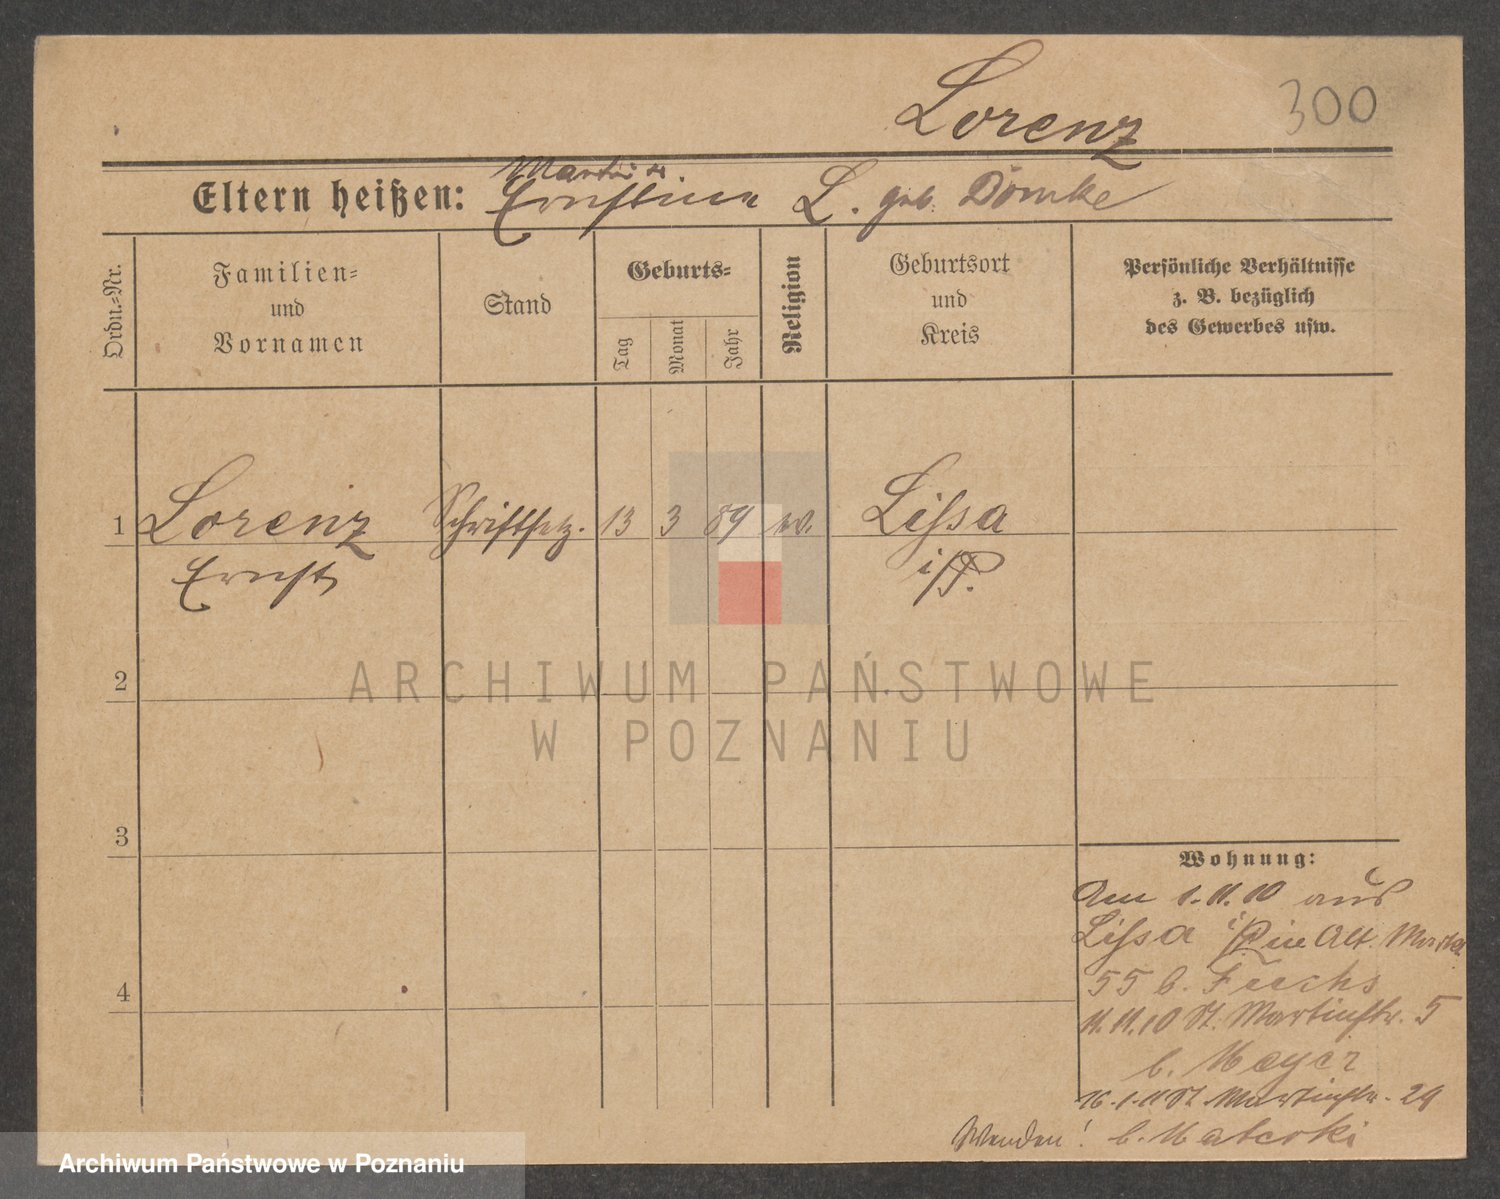 Lorenz
300
Eltern heißen:
Martin u.
Ernstine L. geb. Dömke
Ordn.-Nr.
Familien-
und
Vornamen
Stand
Geburts-
Tag
Monat
Jahr
Religion
Geburtsort
und
Kreis
Persönliche Verhältnisse
z. B. bezüglich
des Gewerbes usw.
1
Lorenz
Ernst
Schriftsetz.
13
3
89
ev.
Lissa
i/P.
2
3
4
Wohnung:
Am 1.11.10 aus
Lissa i/P in Alt. Markt
55 b. Fuchs
11.11.10 St. Martinstr. 5
b. Meyer
16.1.11 St. Martinstr. 29
Wenden!
ARCHIWUM PAŃSTWOWE
W POZNANIU
Archiwum Państwowe w Poznaniu